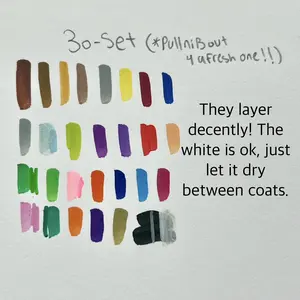 30-Set (*Pull nib out
4 a fresh one!!)
They layer
decently! The
white is ok, just
let it dry
between coats.